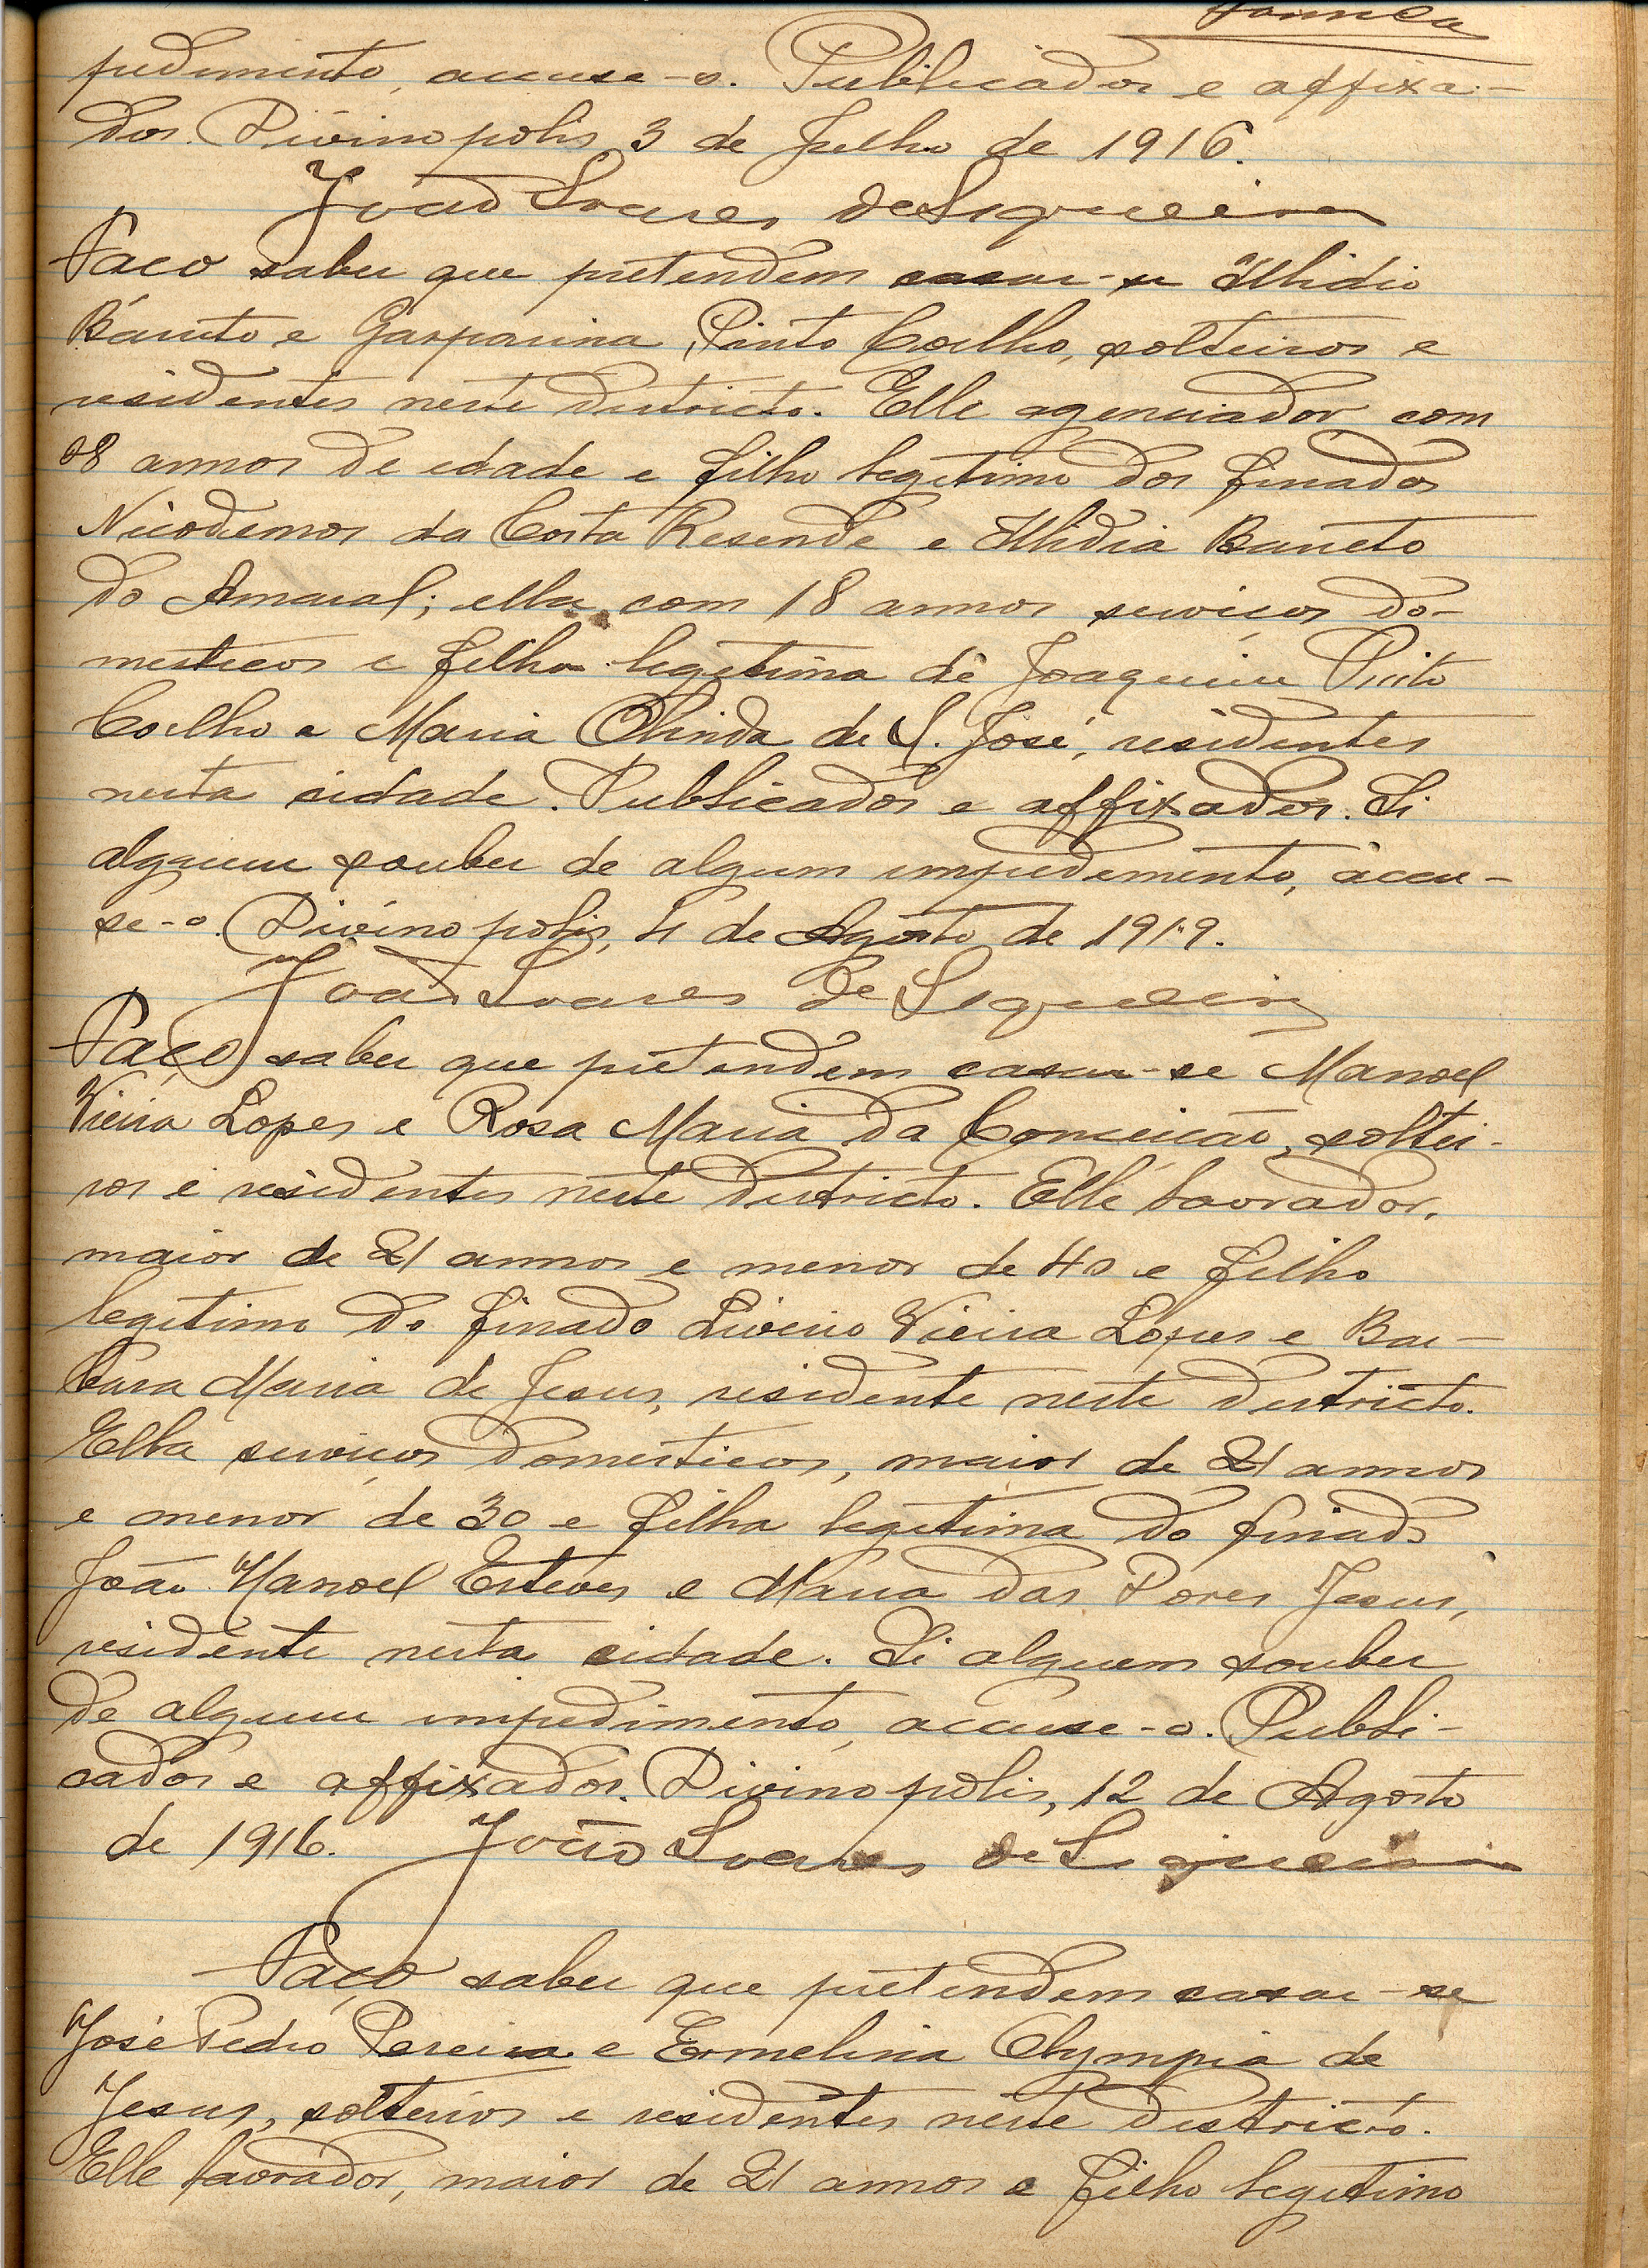 pedimento, accuse-o. Publicados e affixa-
dos. Divinopolis 3 de Julho de 1916.
João Soares de Siqueira
Faço saber que pretendem casar-se Illidio
Barreto e Gasparina Pinto Coelho, solteiros e
residentes neste districto. Elle agenciador com
28 annos de edade e filho legitimo dos finados
Nicodemos da Costa Resende e Illidia Barreto
do Amaral; ella com 18 annos serviços do-
mesticos e filha legitima de Joaquim Pinto
Coelho e Maria Olinda de S. José, residentes
nesta cidade. Publicados e affixados. Si
alguem souber de algum impedimento, accu-
se-o. Divinopolis, 4 de Agosto de 1919.
João Soares de Siqueira
Faço saber que pretendem casar-se Manoel
Vieira Lopes e Rosa Maria da Conceicão, soltei-
ros e residentes neste districto. Elle lavrador,
maior de 21 annos e menor de 40 e filho
legitimo do finado Liverio Vieira Lopes e Bar-
bara Maria de Jesus, residente neste districto.
Ella serviços domesticos, maior de 21 annos
e menor de 30 e filha legitima do finado
João Manoel Esteves e Maria das Dores Jesus,
residente nesta cidade. Si alguem souber
de algum impedimento, accuse-o. Publi-
cados e affixados. Divinopolis, 12 de Agosto
de 1916. João Soares de Siqueira
Faço saber que pretendem casar-se
José Pedro Pereira e Ermelinia Olympia de
Jesus, solteiros e residentes neste districto.
Elle lavrador, maior de 21 annos e filho legitimo